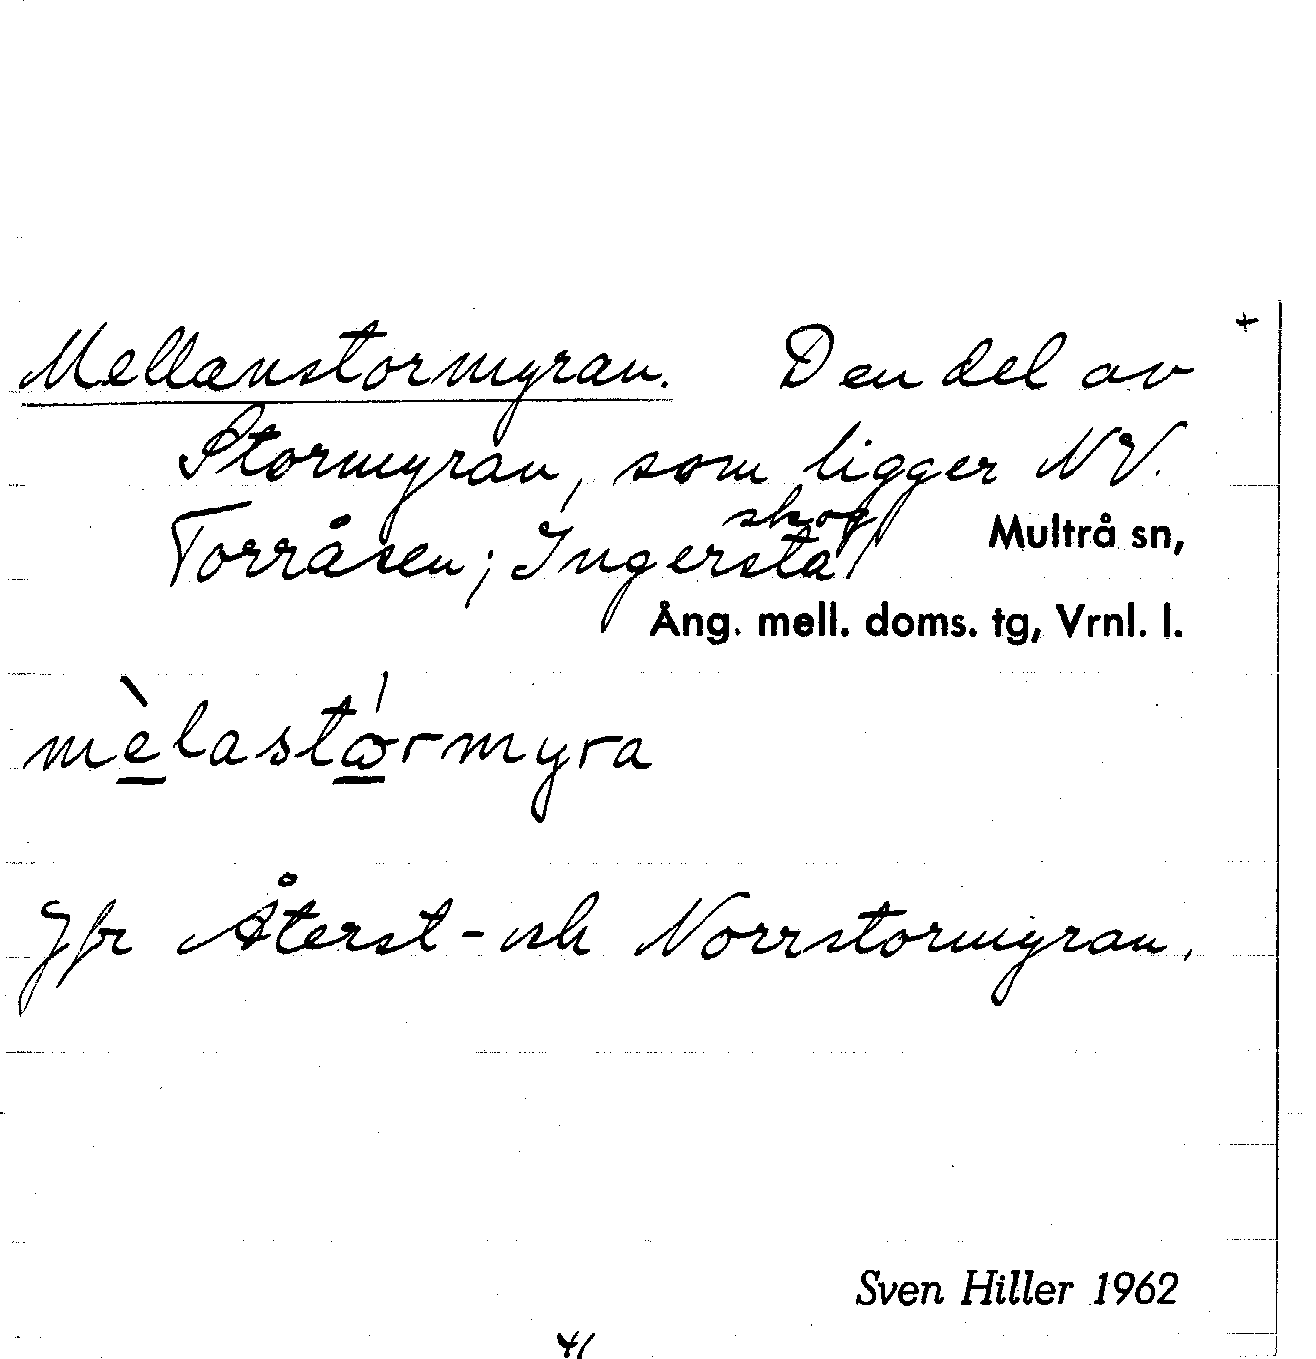 Mellanstormyran. Den del av +
Stormyran, som ligger NV.
Torråsen; Ingersta skog Multrå sn,
Ång. mell. doms. tg, Vrnl. l.
mèlastórmyra
Jfr Återst- och Norrstormyran.
Sven Hiller 1962